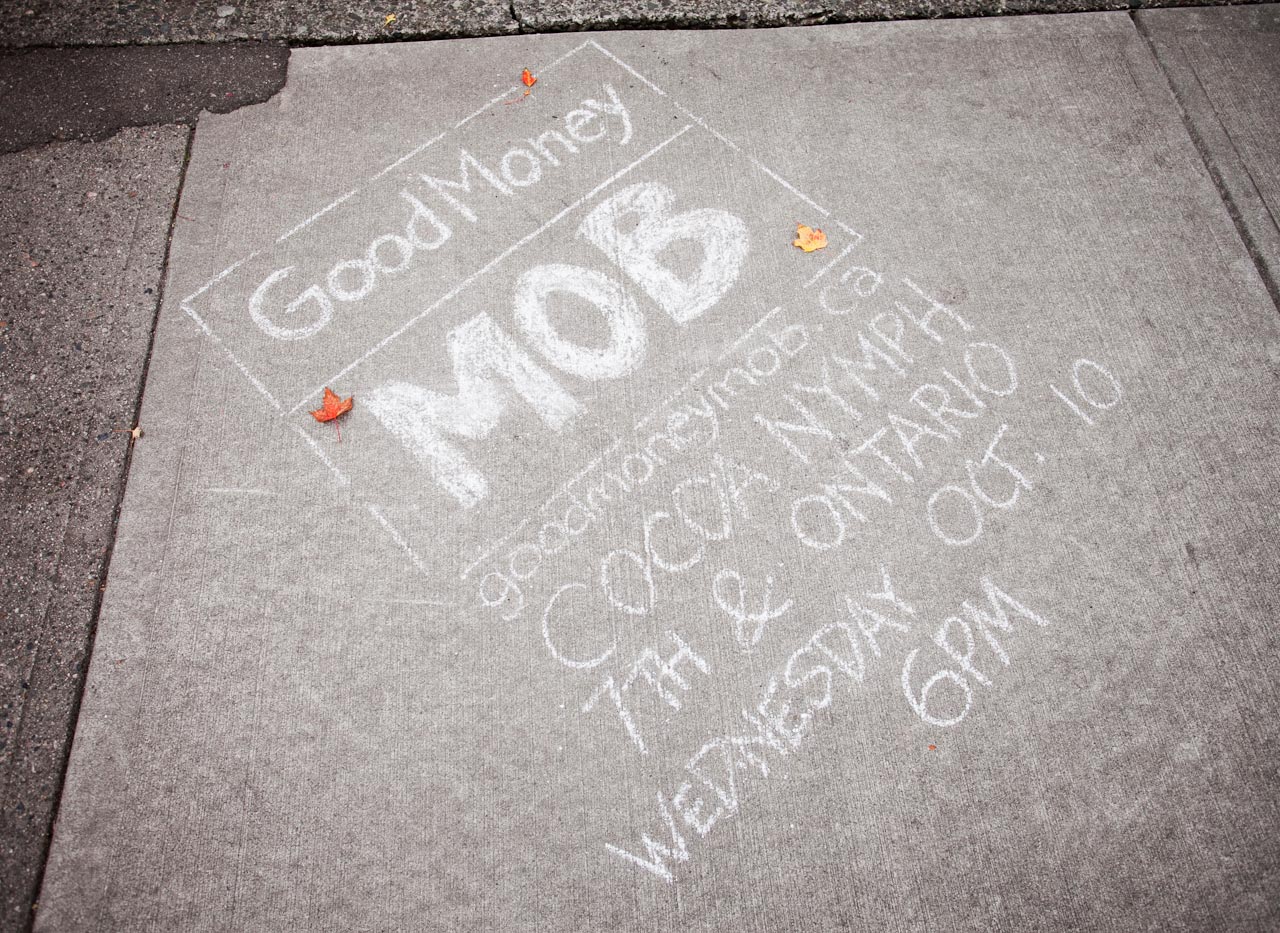 GoodMoney
MOB
goodmoneymob.ca
COCOA NYMPH
7TH & ONTARIO
WEDNESDAY OCT. 10
6PM